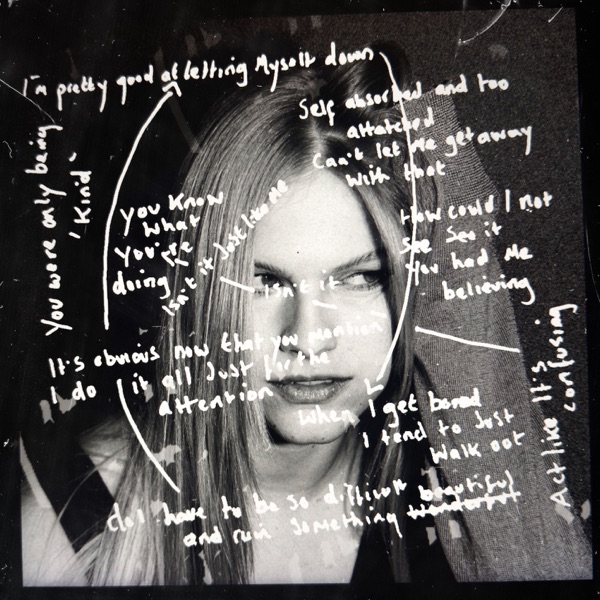 I'm pretty good at letting Myself down
Self absorbed and too
attatched
Can't let me get away
With that
You were only being
'Kind'
You Know
What
You're
doing
Isn't it Just like Me
Isn't it
How could I not
see See it
You had Me
believing
It's obvious now that you mention
I do it all Just for the
attention
When I get bored
I tend to Just
Walk out
Act like It's
confusing
do I have to be so difficult beautiful
and ruin Something wonderful